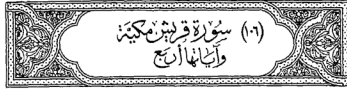 (١٠٦) سُورَةِ قُرَيْشٍ مَكِيَّة
وَآيَاتُهَا أَرْبَعٌ